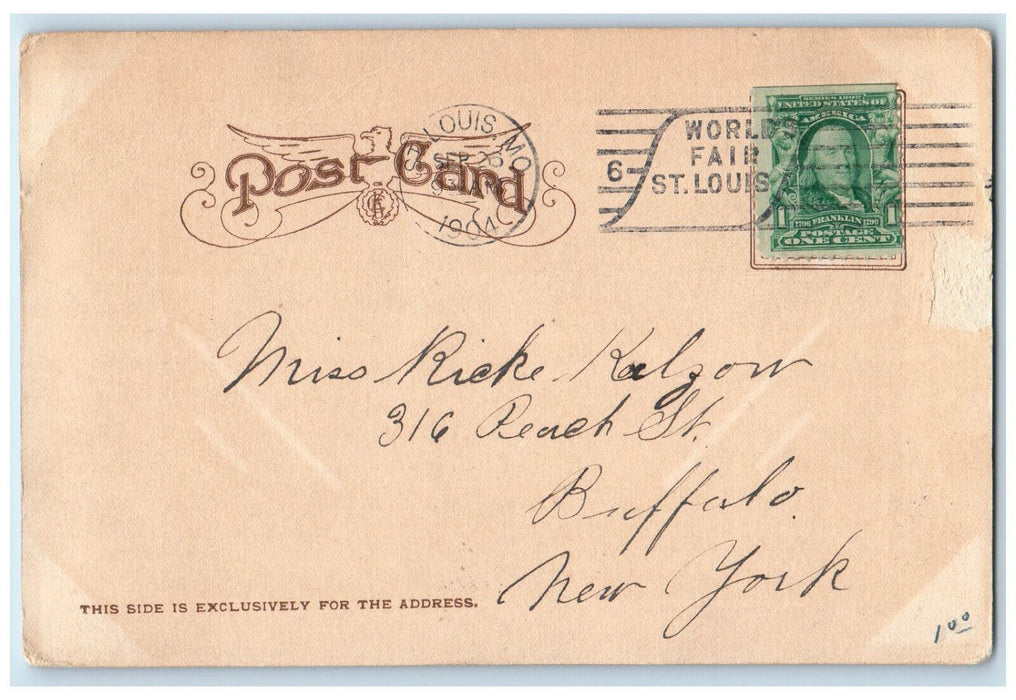 Post Card
ST. LOUIS, MO.
SEP 26
1904
6
WORLD'S
FAIR
ST. LOUIS
SERIES 1902
UNITED STATES OF
AMERICA
1 1
1706 FRANKLIN 1790
POSTAGE
ONE CENT
Miss Ricke Kalzow
316 Peach St.
Buffalo.
New York
THIS SIDE IS EXCLUSIVELY FOR THE ADDRESS.
1 00